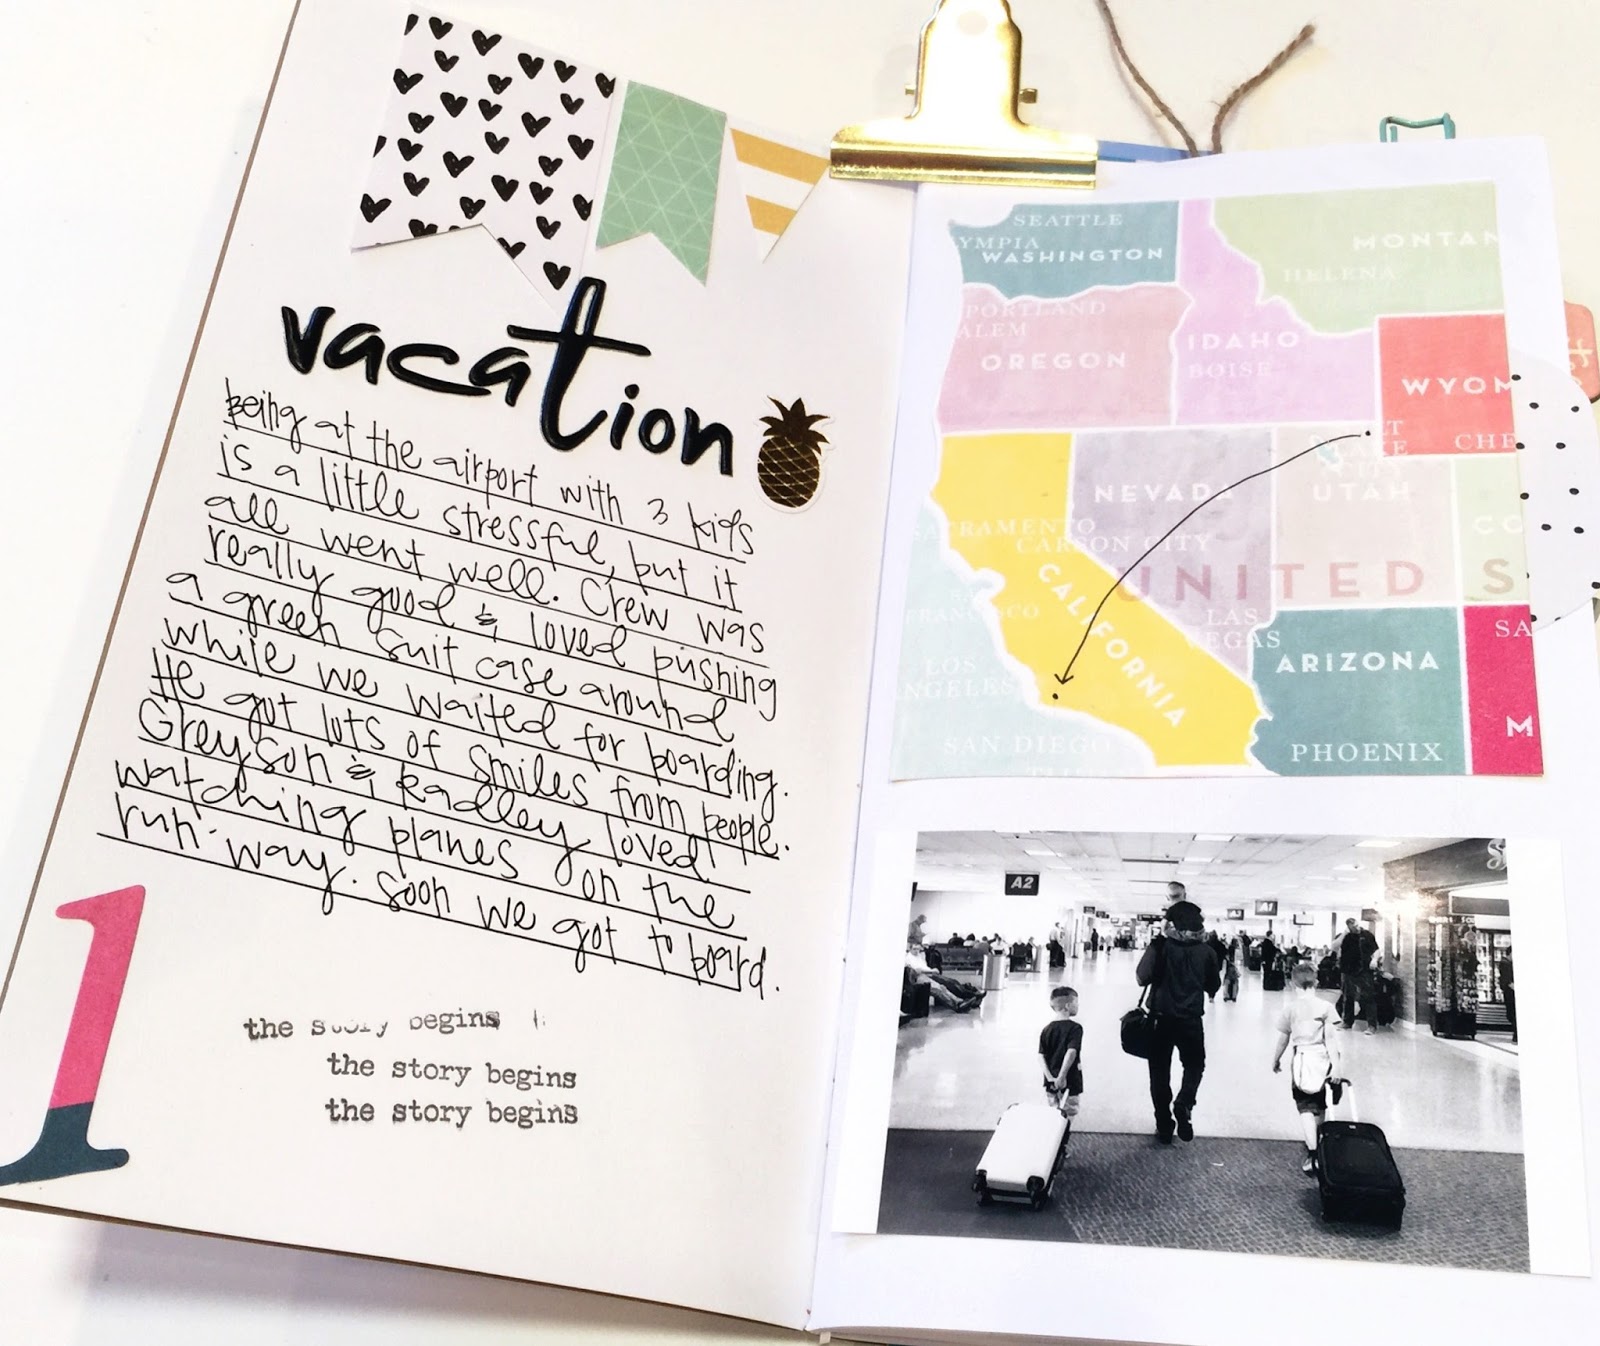 vacation
being at the airport with 3 kids
is a little stressful, but it
all went well. Crew was
really good & loved pushing
a green suit case around
while we waited for boarding.
He got lots of smiles from people.
Greyson & Radley loved
watching planes on the
run-way. Soon we got to board.
1
the story begins
the story begins
the story begins
SEATTLE
LYMPIA
WASHINGTON
MONTAN
HELENA
PORTLAND
ALEM
OREGON
IDAHO
BOISE
WYOM
CHE
LT
LAKE
CITY
NEVADA
UTAH
CO
SACRAMENTO
CARSON CITY
UNITED S
SAN
FRANCISCO
CALIFORNIA
LAS
VEGAS
LOS
ANGELES
ARIZONA
SA
M
SAN DIEGO
PHOENIX
A2
A1